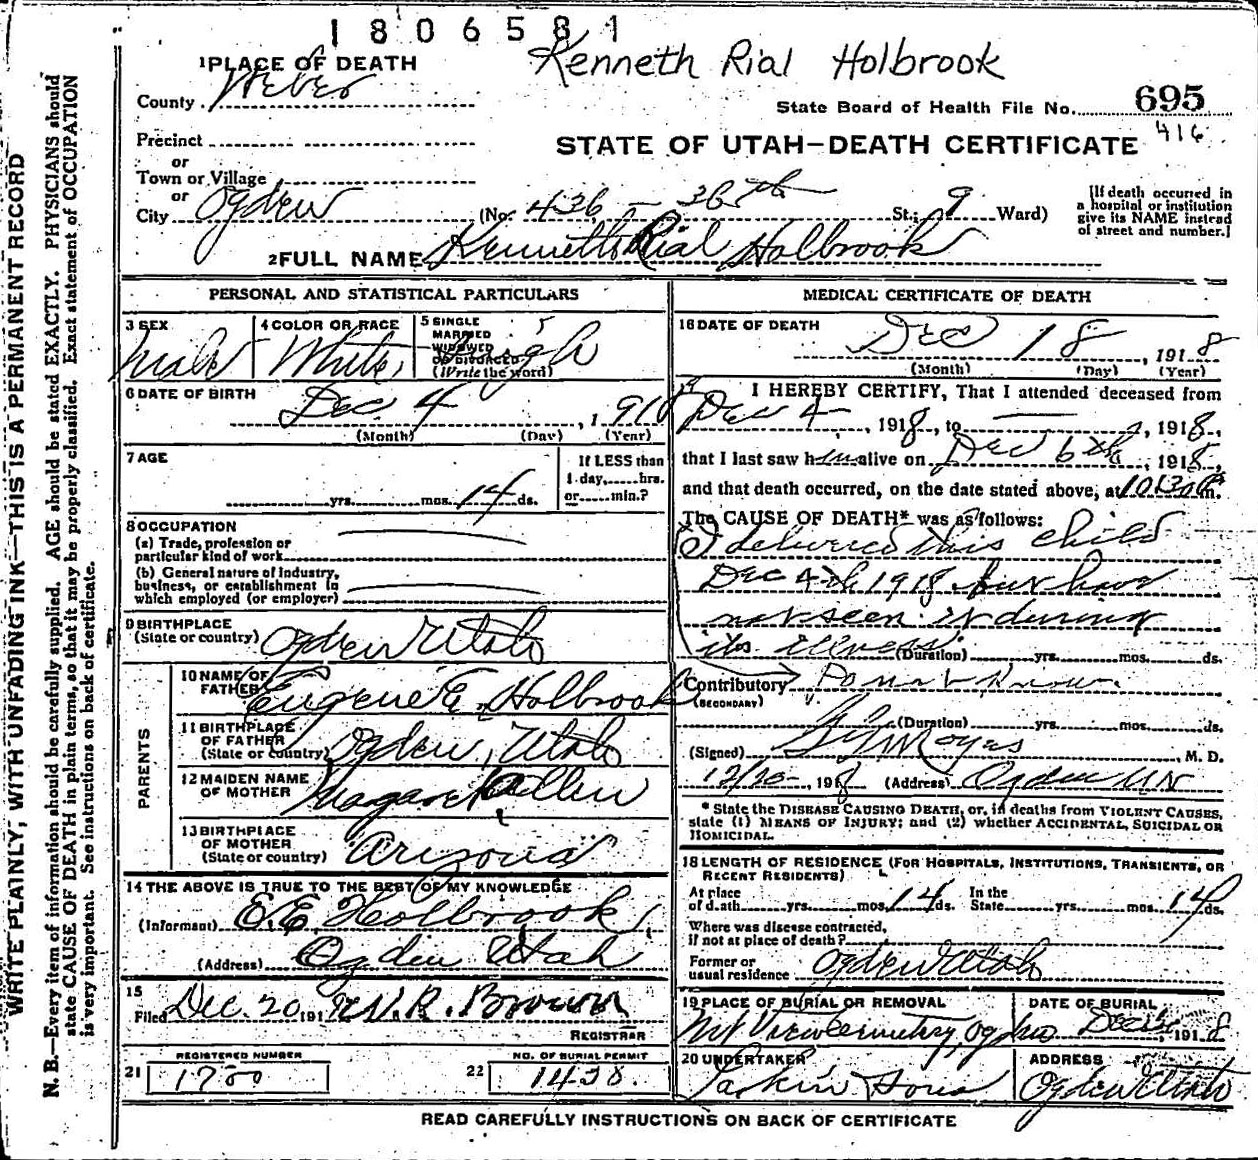 1806581
Kenneth Rial Holbrook
1 PLACE OF DEATH
County Weber
State Board of Health File No. 695
416
Precinct
or
Town or Village
or
City Ogden
STATE OF UTAH—DEATH CERTIFICATE
(No. 436 - 36th St.; 9 Ward)
[If death occurred in
a hospital or institution
give its NAME instead
of street and number.]
2 FULL NAME Kenneth Rial Holbrook
PERSONAL AND STATISTICAL PARTICULARS
3 SEX
Male
4 COLOR OR RACE
White
5 SINGLE
MARRIED
WIDOWED
OR DIVORCED
(Write the word)
Single
6 DATE OF BIRTH
Dec. 4, 1918
(Month) (Day) (Year)
7 AGE
yrs. mos. 14 ds.
If LESS than
1 day, hrs.
or min.?
8 OCCUPATION
(a) Trade, profession or
particular kind of work
(b) General nature of industry,
business, or establishment in
which employed (or employer)
9 BIRTHPLACE
(State or country) Ogden Utah
PARENTS
10 NAME OF
FATHER Eugene E. Holbrook
11 BIRTHPLACE
OF FATHER
(State or country) Ogden, Utah
12 MAIDEN NAME
OF MOTHER Margaret Allen
13 BIRTHPLACE
OF MOTHER
(State or country) Arizona
14 THE ABOVE IS TRUE TO THE BEST OF MY KNOWLEDGE
(Informant) E. E. Holbrook
(Address) Ogden Utah
15
Filed Dec. 20, 191 W. R. Brown
REGISTRAR
REGISTERED NUMBER
21 1700
NO. OF BURIAL PERMIT
22 1430.
MEDICAL CERTIFICATE OF DEATH
16 DATE OF DEATH
Dec 18, 1918
(Month) (Day) (Year)
17 I HEREBY CERTIFY, That I attended deceased from
Dec 4, 1918, to , 1918,
that I last saw him alive on Dec 6th, 1918,
and that death occurred, on the date stated above, at 10:30 P m.
The CAUSE OF DEATH* was as follows:
I delivered this child
Dec 4th 1918 but have
not seen it during
its illness.
(Duration) yrs. mos. ds.
Contributory Do not know.
(SECONDARY)
(Duration) yrs. mos. ds.
(Signed) Moyes M. D.
12/20, 1918 (Address) Ogden Ut
* State the DISEASE CAUSING DEATH, or, in deaths from VIOLENT CAUSES,
state (1) MEANS OF INJURY; and (2) whether ACCIDENTAL, SUICIDAL OR
HOMICIDAL.
18 LENGTH OF RESIDENCE (FOR HOSPITALS, INSTITUTIONS, TRANSIENTS, OR
RECENT RESIDENTS)
At place
of death yrs. mos. 14 ds.
In the
State yrs. mos. 14 ds.
Where was disease contracted,
if not at place of death?
Former or
usual residence Ogden Utah
19 PLACE OF BURIAL OR REMOVAL
Mt View Cemetery, Ogden
DATE OF BURIAL
Dec , 1918
20 UNDERTAKER
Larkin & Sons
ADDRESS
Ogden Utah
READ CAREFULLY INSTRUCTIONS ON BACK OF CERTIFICATE
WRITE PLAINLY, WITH UNFADING INK—THIS IS A PERMANENT RECORD
N. B.—Every item of information should be carefully supplied. AGE should be stated EXACTLY. PHYSICIANS should
state CAUSE OF DEATH in plain terms, so that it may be properly classified. Exact statement of OCCUPATION
is very important. See instructions on back of certificate.